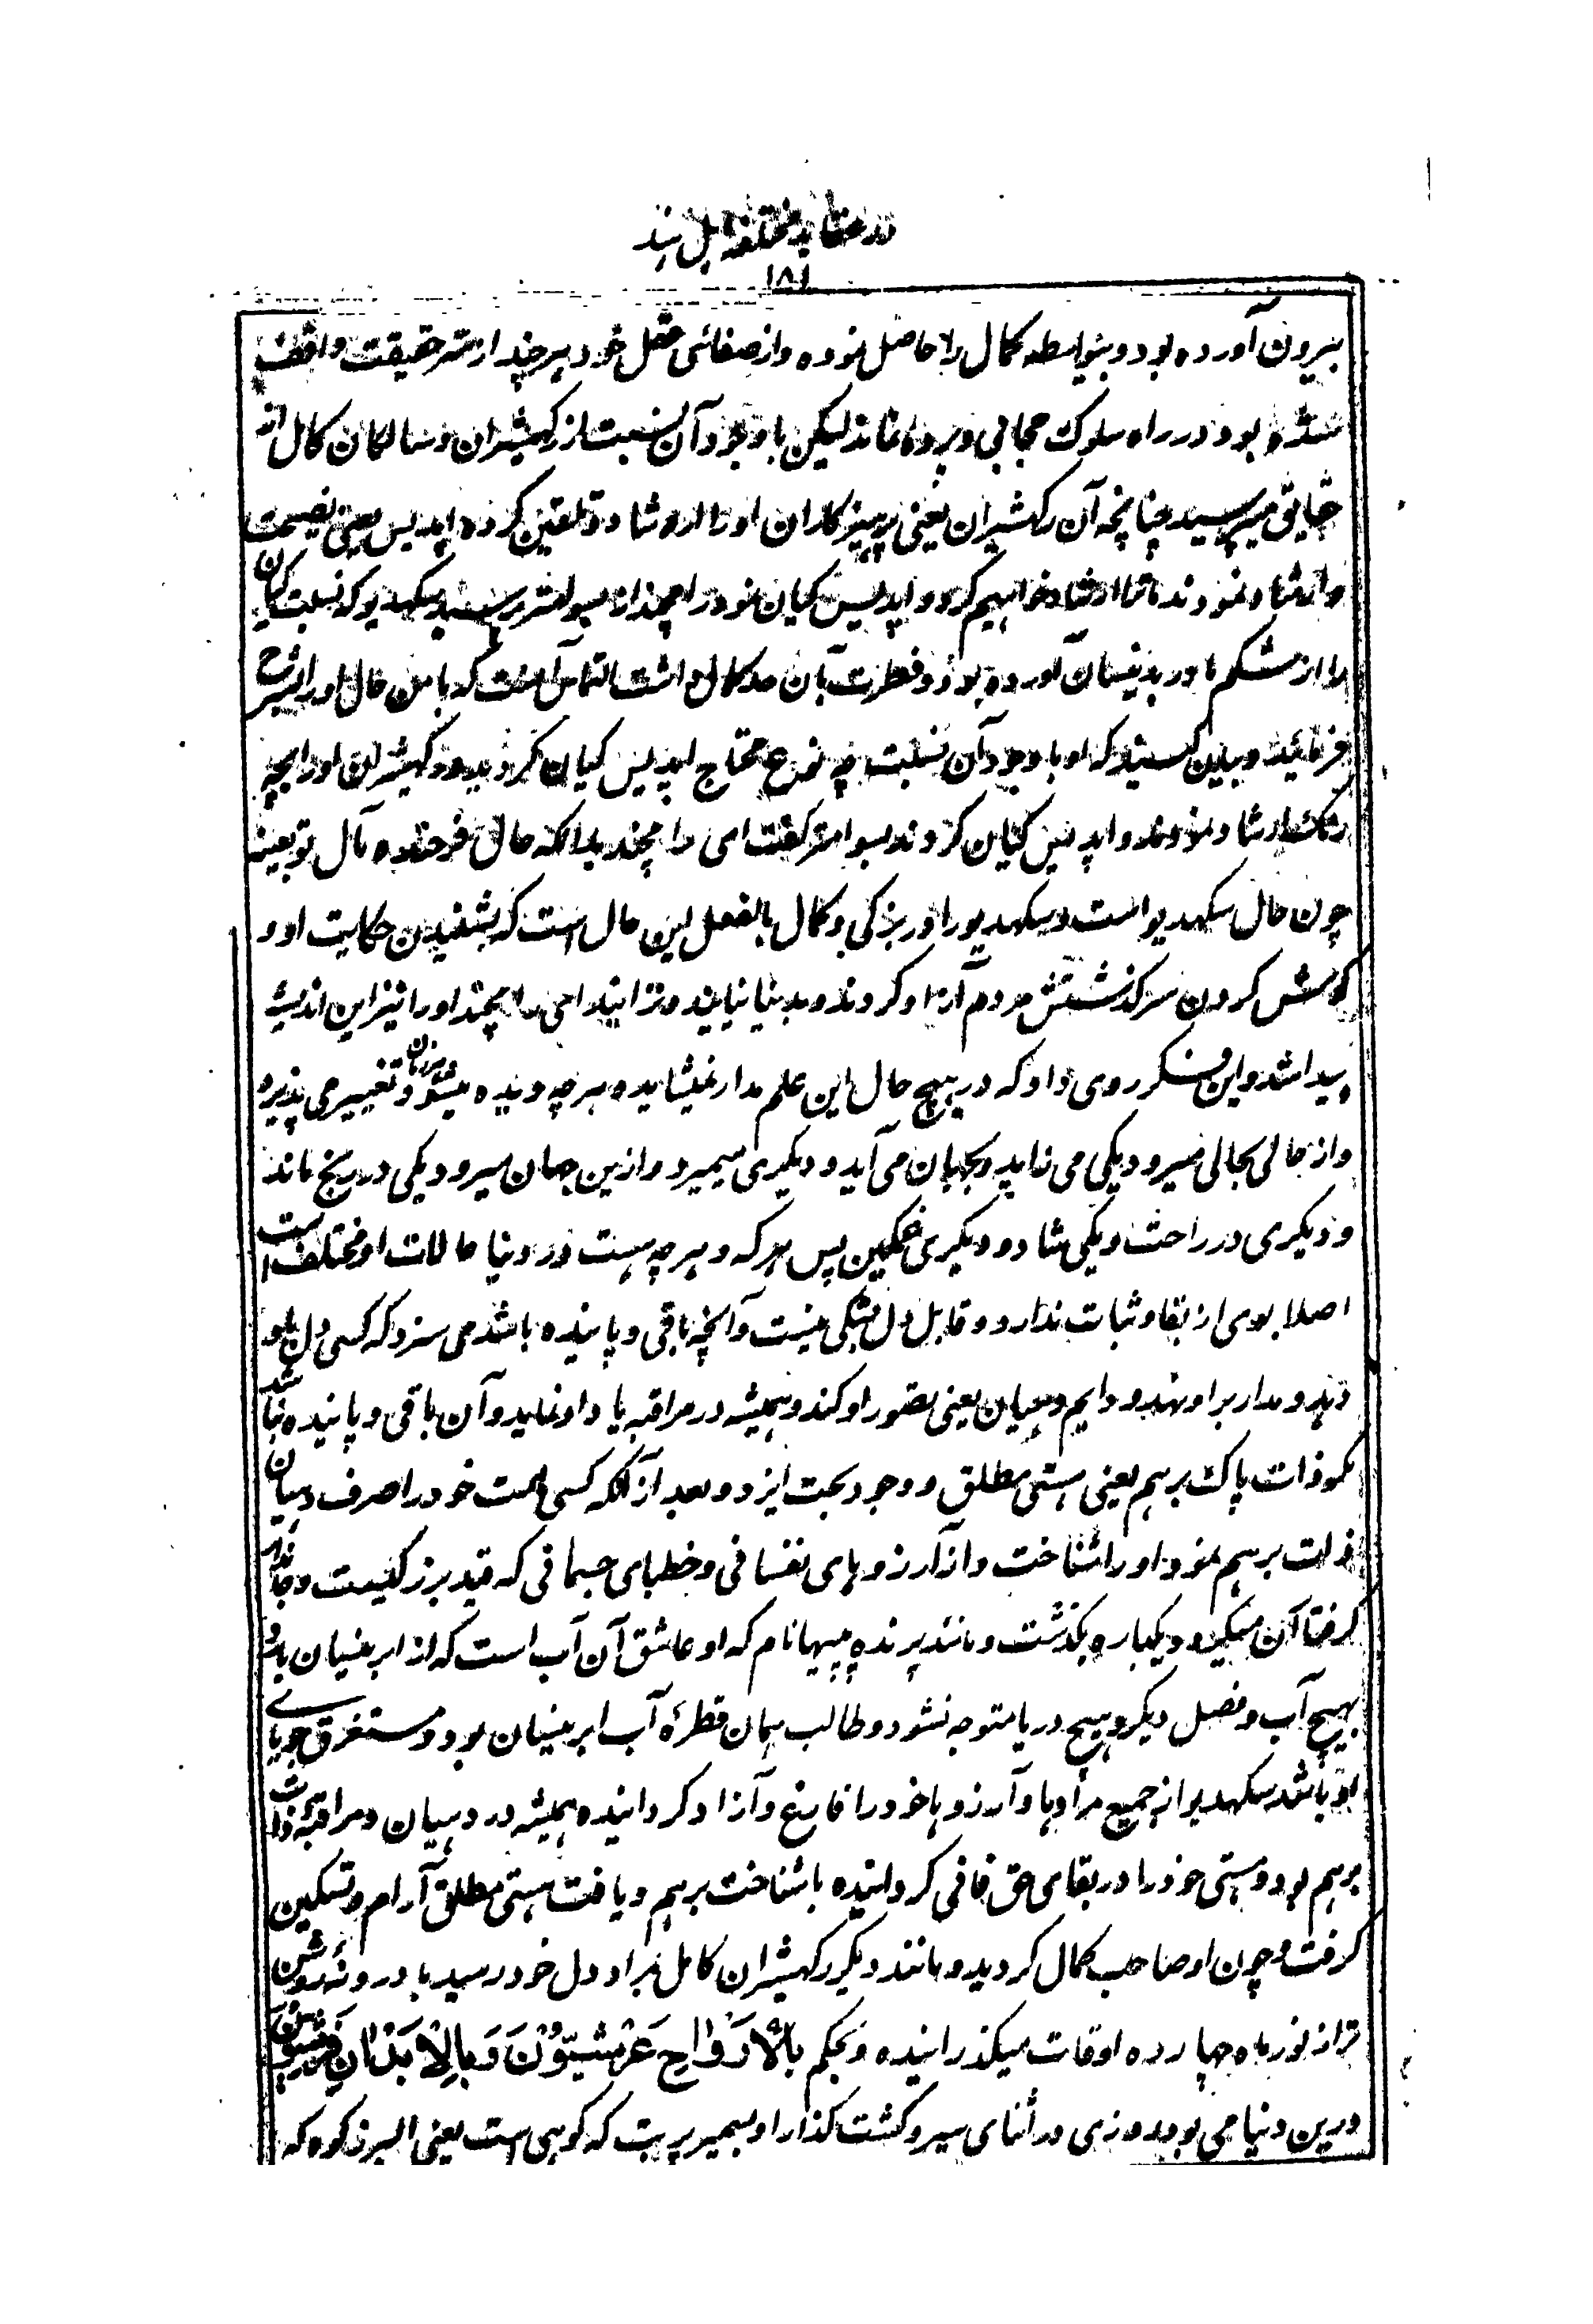 در عقاید مختلفه اهل هند
۱۸۱
بیرون آورده بود و بیواسطه کمال را حاصل نموده و از صفائی عقل خود هر چند از سر حقیقت واقف
شده بود و در راه سلوک حجابی و پرده نماند لیکن با وجود آن نسبت از رکهیشران و سالکان کامل از
حقایق میپرسید چنانچه آن رکهیشران یعنی پرهیزکاران او را ارشاد و تلقین کرده اپدیس یعنی نصیحت
و ارشاد نمودند تا ترا ارشاد خواهیم کرد و اپدیس کیان نمود رامچند از بسوامتر پرسید سکهدیو که نسبت کیان
را از شکم مادر بدینسان آورده بود و فطرت بآن حد کمال داشت التماس آنست که با من حال او را شرح
فرمائید و بیان کنید که او با وجود آن نسبت چه نوع محتاج اپدیس کیان کردید و رکهیشران او را بچه
رنگ ارشاد نمودند و اپدیس کیان کردند بسوامتر کفت ای رامچند بدانکه حال فرخنده مآل تو بعینه
چون حال سکهدیو است و سکهدیو را در بزرکی و کمال بالفعل این حال است که بشنیدن حکایت او و
کوش کردن سرکذشتش مردم آزاد کردند و بدنیا نیایند و نزایند ای رامچند او را نیز این اندیشه
پیدا شد و این فکر روی داد که در هیچ حال این علم مدار نمیشاید و هر چه دیده میشود هر زمان تغییر می پذیرد
و از حالی بحالی میرود یکی می زاید و بجهان می آید و دیکری میمیرد و ازین جهان میرود یکی در رنج ماند
و دیکری در راحت و یکی شاد و دیکری غمکین پس هر که و هر چه هست در دنیا حالات او مختلف است
اصلا بوی از بقا و ثبات ندارد و قابل دل بستکی نیست و آنچه باقی و پاینده باشد می سزد که کسی دل باو
دهد و مدار بر او نهد و دایم دهیان یعنی تصور او کند و همیشه در مراقبه یاد او نماید و آن باقی و پاینده نباشد
مکر ذات پاک برهم یعنی هستی مطلق و وجود بحت ایزد و بعد از آنکه کسی همت خود را صرف دهیان
ذات برهم نمود او را شناخت و از آرزوهای نفسانی و خطهای جسمانی که قید بزرکیست و جاندار
کرفتار آن میکردد یکباره بکذشت و مانند پرنده پپیها نام که او عاشق آن آب است که از ابر نیسان بارد
بهیچ آب و فصل دیکر و هیچ دریا متوجه نشود و طالب همان قطرهٔ آب ابر نیسان بود و مستغرق جویای
او باشد سکهدیو از جمیع مرادها و آرزوها خود را فارغ و آزاد کردانیده همیشه در دهیان و مراقبه ذات
برهم بود و هستی خود را در بقای حق فانی کردانیده با شناخت برهم و یافت هستی مطلق آرام و تسکین
کرفت و چون او صاحب کمال کردید و مانند دیکر رکهیشران کامل بمراد دل خود رسید با درونهٔ روشن
تر از نور ماه چهارده اوقات میکذرانیده و بحکم بالارواح عرشیّون و بالابدان فرشیون
درین دنیا می بود روزی در اثنای سیر و کشت کذار او بسمیر پربت که کوهی است یعنی البرز کوه که